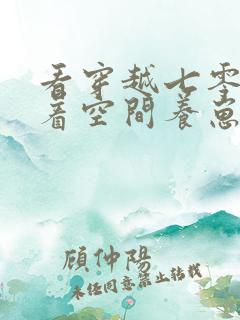 看穿越七零
着空間養崽
顧仲陽
未經同意禁止轉載